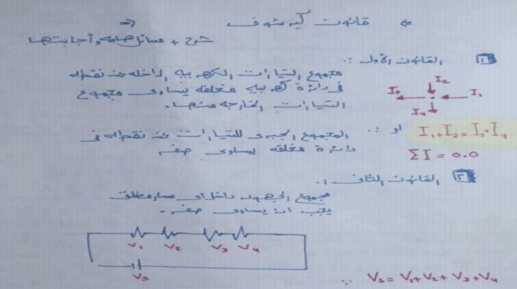 قانون كيرشوف
شرح + مسائل هامة وأجابتها
1 القانون الأول :.
مجموع التيارات الكهربيه الداخله عند نقطه
فى دائرة كهربيه مغلقه يساوى مجموع
التيارات الخارجه منها.
I2
I3 I1
I4
او :. المجموع الجبرى للتيارات عند نقطه فى
دائرة مغلقه يساوى صفر
I1+I2 = I3+I4
ΣI = 0.0
2 القانون الثانى :.
مجموع الجهود داخل اى مسار مغلق
يجب ان يساوى صفر.
V1 V2 V3 V4
Vs
∵ Vs = V1+V2+V3+V4